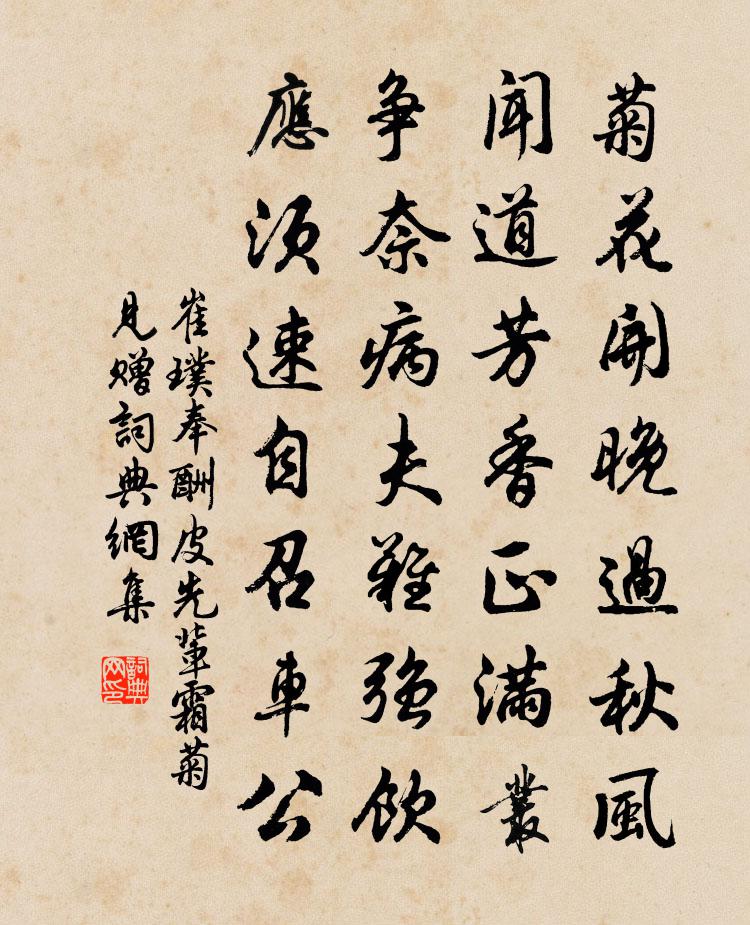 菊花開晚過秋風
聞道芳香正滿叢
争奈病夫難強飲
應須速自召車公
崔璞奉酬皮先輩霜菊
見贈詞典網集
詞典網印